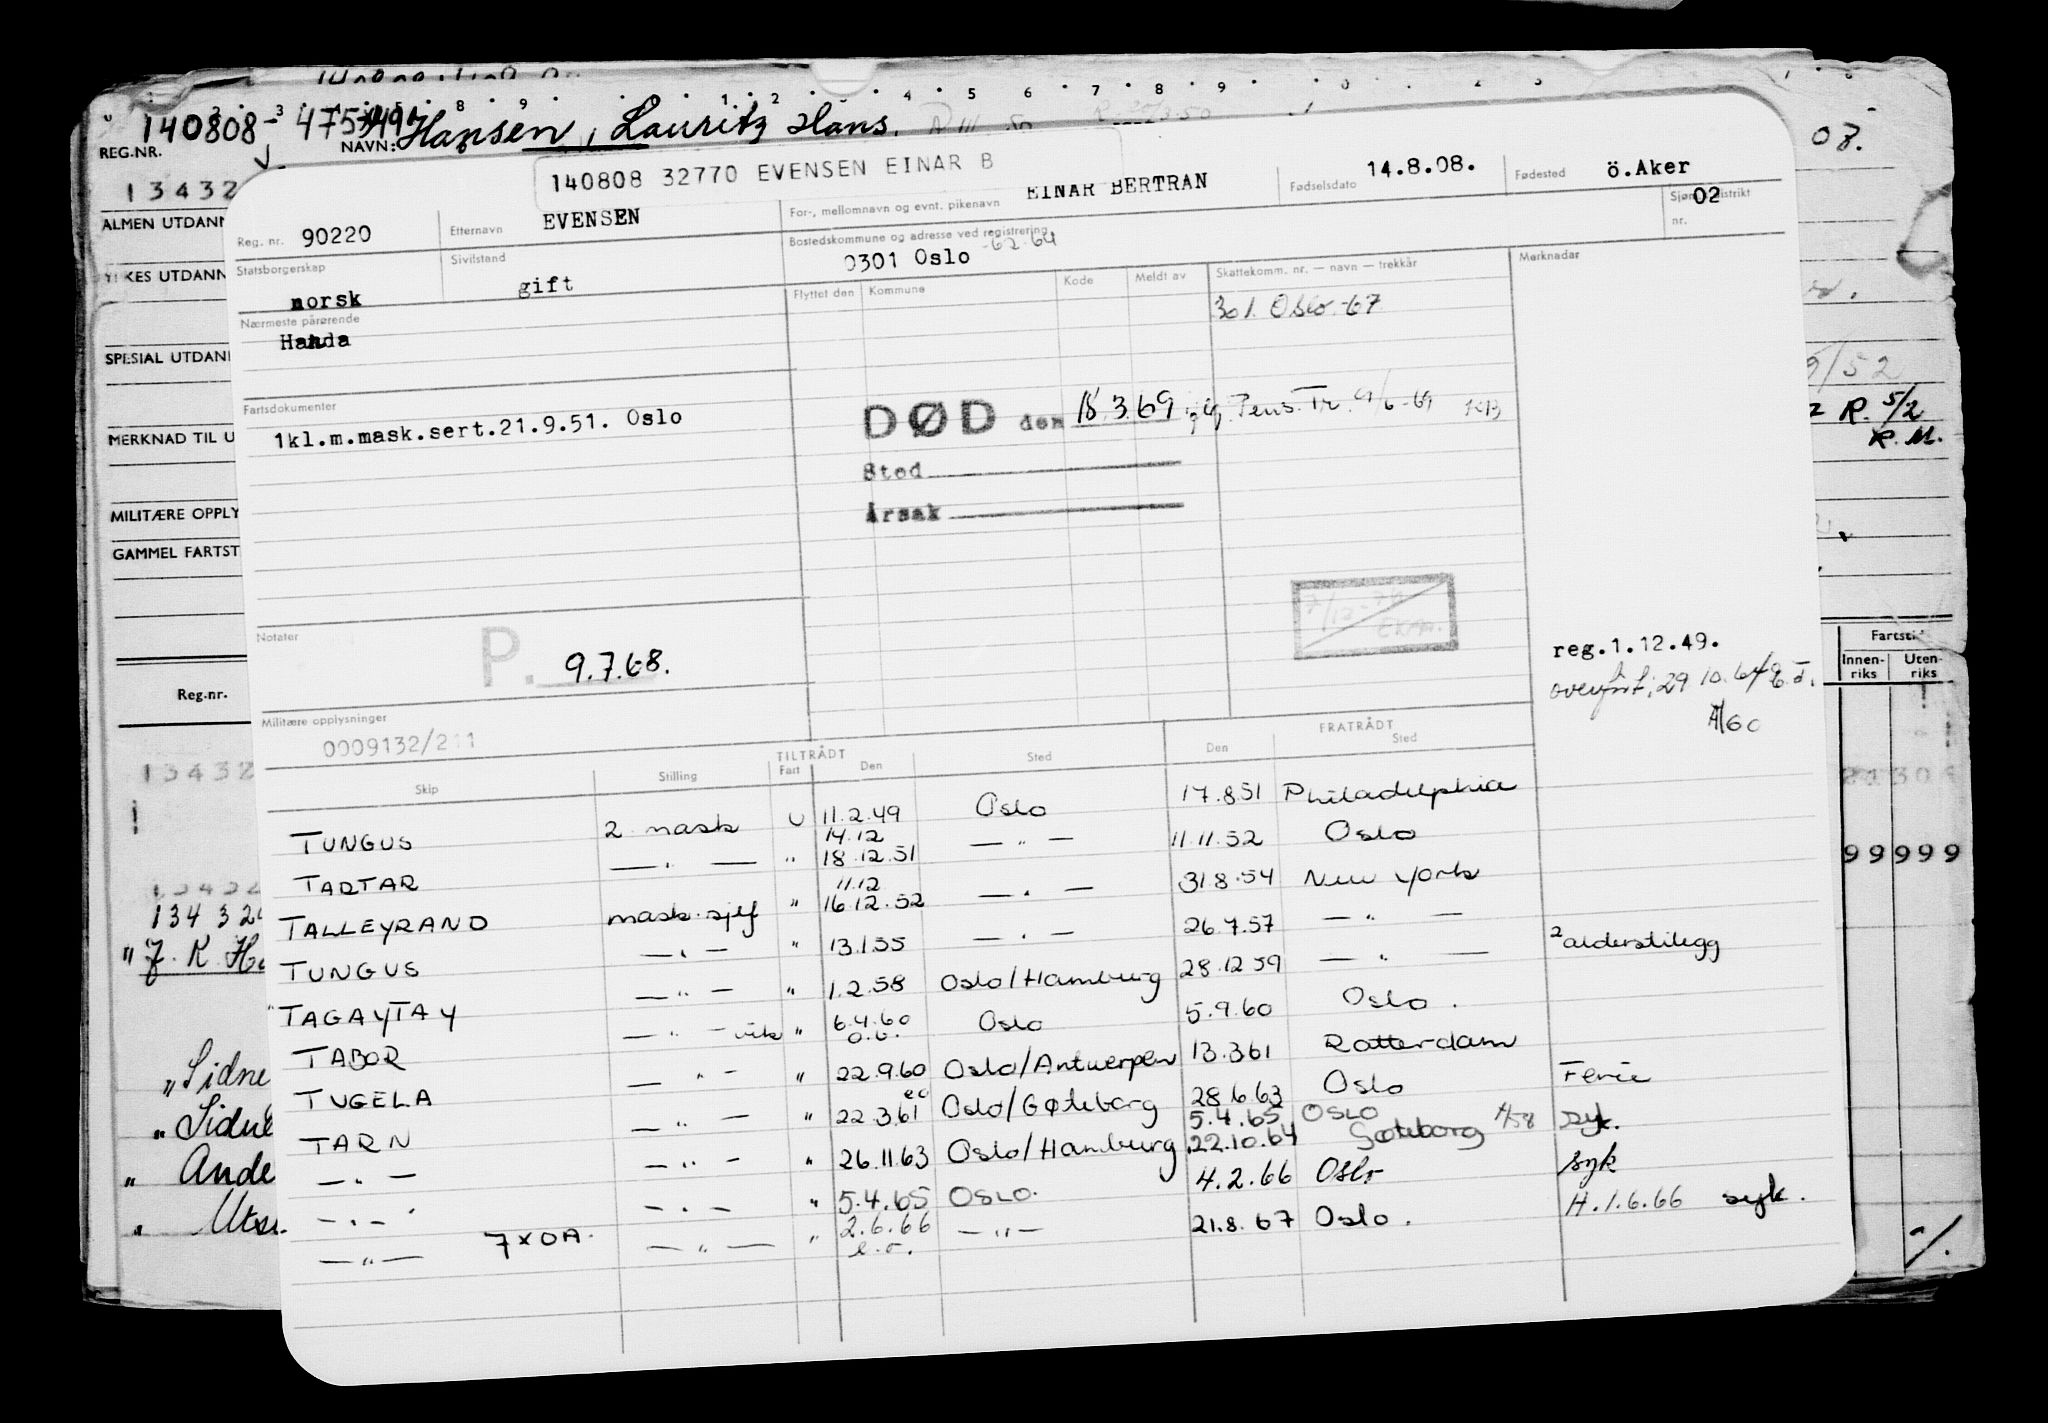 140808-
REG.NR.
NAVN: Hansen, Lauritz Hans.
08.
13432
ALMEN UTDANN
YRKES UTDANN
SPESIAL UTDANN
MERKNAD TIL U
MILITÆRE OPPLY
GAMMEL FARTST
Reg.nr.
140808 32770 EVENSEN EINAR B
Reg. nr. 90220
Etternavn EVENSEN
For-, mellomnavn og evnt. pikenavn EINAR BERTRAN
Fødselsdato 14.8.08.
Fødested ö.Aker
Statsborgerskap norsk
Sivilstand gift
Bostedskommune og adresse ved registrering 0301 Oslo -62-64
02
nr.
Nærmeste pårørende
Handa
Flyttet den
Kommune
Kode
Meldt av
Skattekomm. nr. — navn — trekkår
301. Oslo -67
Merknader
Fartsdokumenter
1kl.m.mask.sert.21.9.51. Oslo
DØD den 3.69
Sted
Årsak
R. 5/2
R. M.
Notater
P. 9.7.68.
reg.1.12.49.
overført: 29 10.64
A/60
Militære opplysninger
0009132/211
Innen-riks
Uten-riks
TILTRÅDT
FRATRÅDT
Skip
Stilling
Fart
Den
Sted
Den
Sted
TUNGUS 2. mask U 11.2.49 Oslo 17.8.51 Philadelphia
TARTAR — " — " 14.12 18.12.51 — " — 11.11.52 Oslo
TALLEYRAND mask.sjef " 11.12 16.12.52 — " — 31.8.54 New York
TUNGUS — " — " 13.1.55 — " — 26.7.57 — " —
TAGAYTAY — " — " 1.2.58 Oslo/Hamburg 28.12.59 — " — 2 alderstillegg
TABOR — " — vik " 6.4.60 Oslo 5.9.60 Oslo.
TUGELA — " — " 22.9.60 Oslo/Antwerpen 13.3.61 Rotterdam
TARN — " — " 22.3.61 Oslo/Gøteborg 28.6.63 Oslo Ferie
— " — — " — " 26.11.63 Oslo/Hamburg 22.10.64 Gøteborg A/58 syk.
5.4.65 OSLO
— " — — " — " 5.4.65 OSLO. 4.2.66 Oslo syk
— " — 7 x OA. — " — " 2.6.66 e.o. — " — 21.8.67 Oslo. H.1.6.66 syk.
99999
"Sidne
"Sidne
" Ande